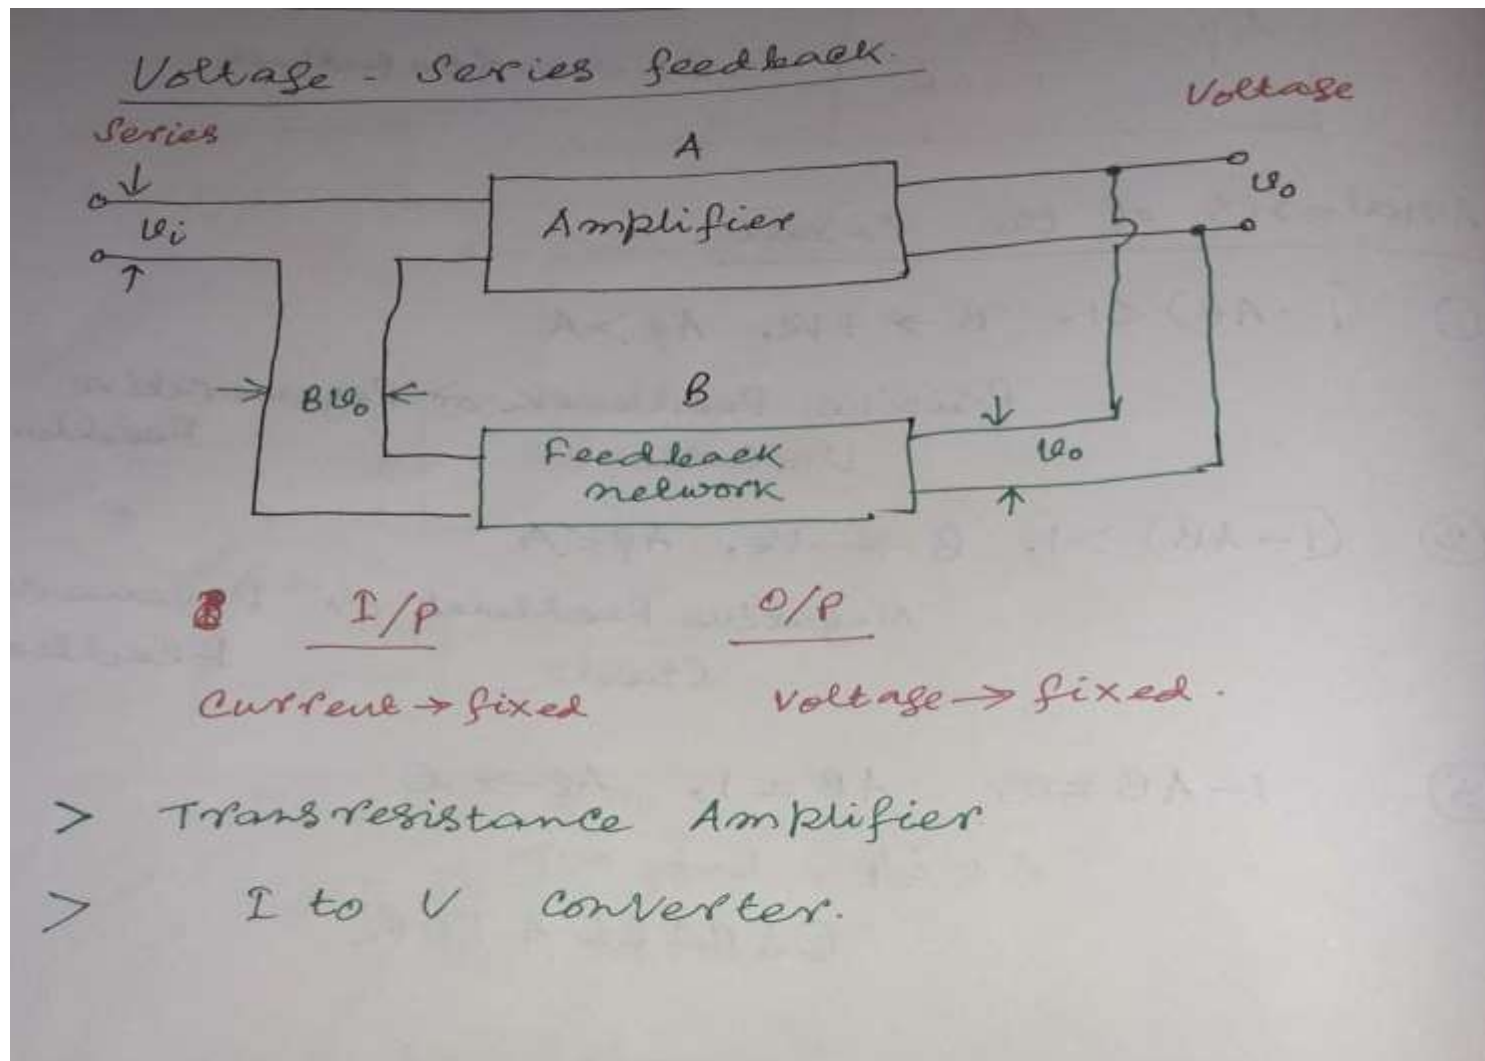 Voltage - Series feedback.
Voltage
Series
A
vi
Amplifier
vo
B
Bvo
Feedback
network
vo
I/P
O/P
Current → fixed
Voltage → fixed.
> Transresistance Amplifier
> I to V converter.